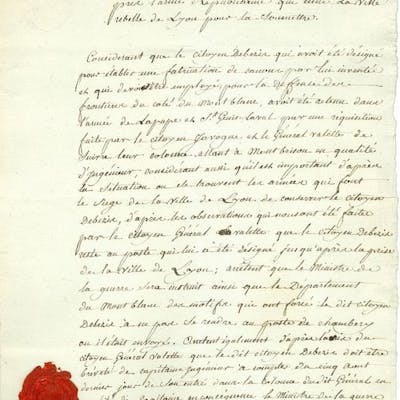 près l'armée Républicaine qui cerne la Ville
rebelle de Lyon pour la Soumettre.
Considerant que le citoyen Debezie qui avoit été désigné
pour établir une fabrication de canons par lui inventés
et qui devoient être employés pour la deffense des
frontières du coté du Montblanc, avoit été retenu dans
l'armée de Lapape et St. Genis Laval par une requisition
faite par le citoyen Javogue et le Général valette de
Suivre leur colonne, allant à Montbrison en qualité
d'Ingénieur, considerant aussi qu'il est important d'après
la Situation ou se trouvent les armées qui font
le Siege de la Ville de Lyon de conserver le citoyen
Debezie, d'après les observations qui nous ont été faites
par le citoyen Général valette que le citoyen Debezie
reste au poste qui lui a été désigné jusqu'après la prise
de la Ville de Lyon; arrêtent que le Ministre de
la guerre Sera instruit ainsi que le Département
du Montblanc des motifs qui ont forcé le dit citoyen
Debezie à ne pas se rendre au poste de chambery
ou il étoit envoyé. également d'après
citoyen Général valette que le dit citoyen Debezie doit être
bréveté de capitaine Ingénieur à compter du cinq aout
dernier jour de Son entrée dans la colonne du dit Général en
en consequence le Ministre de la guerre